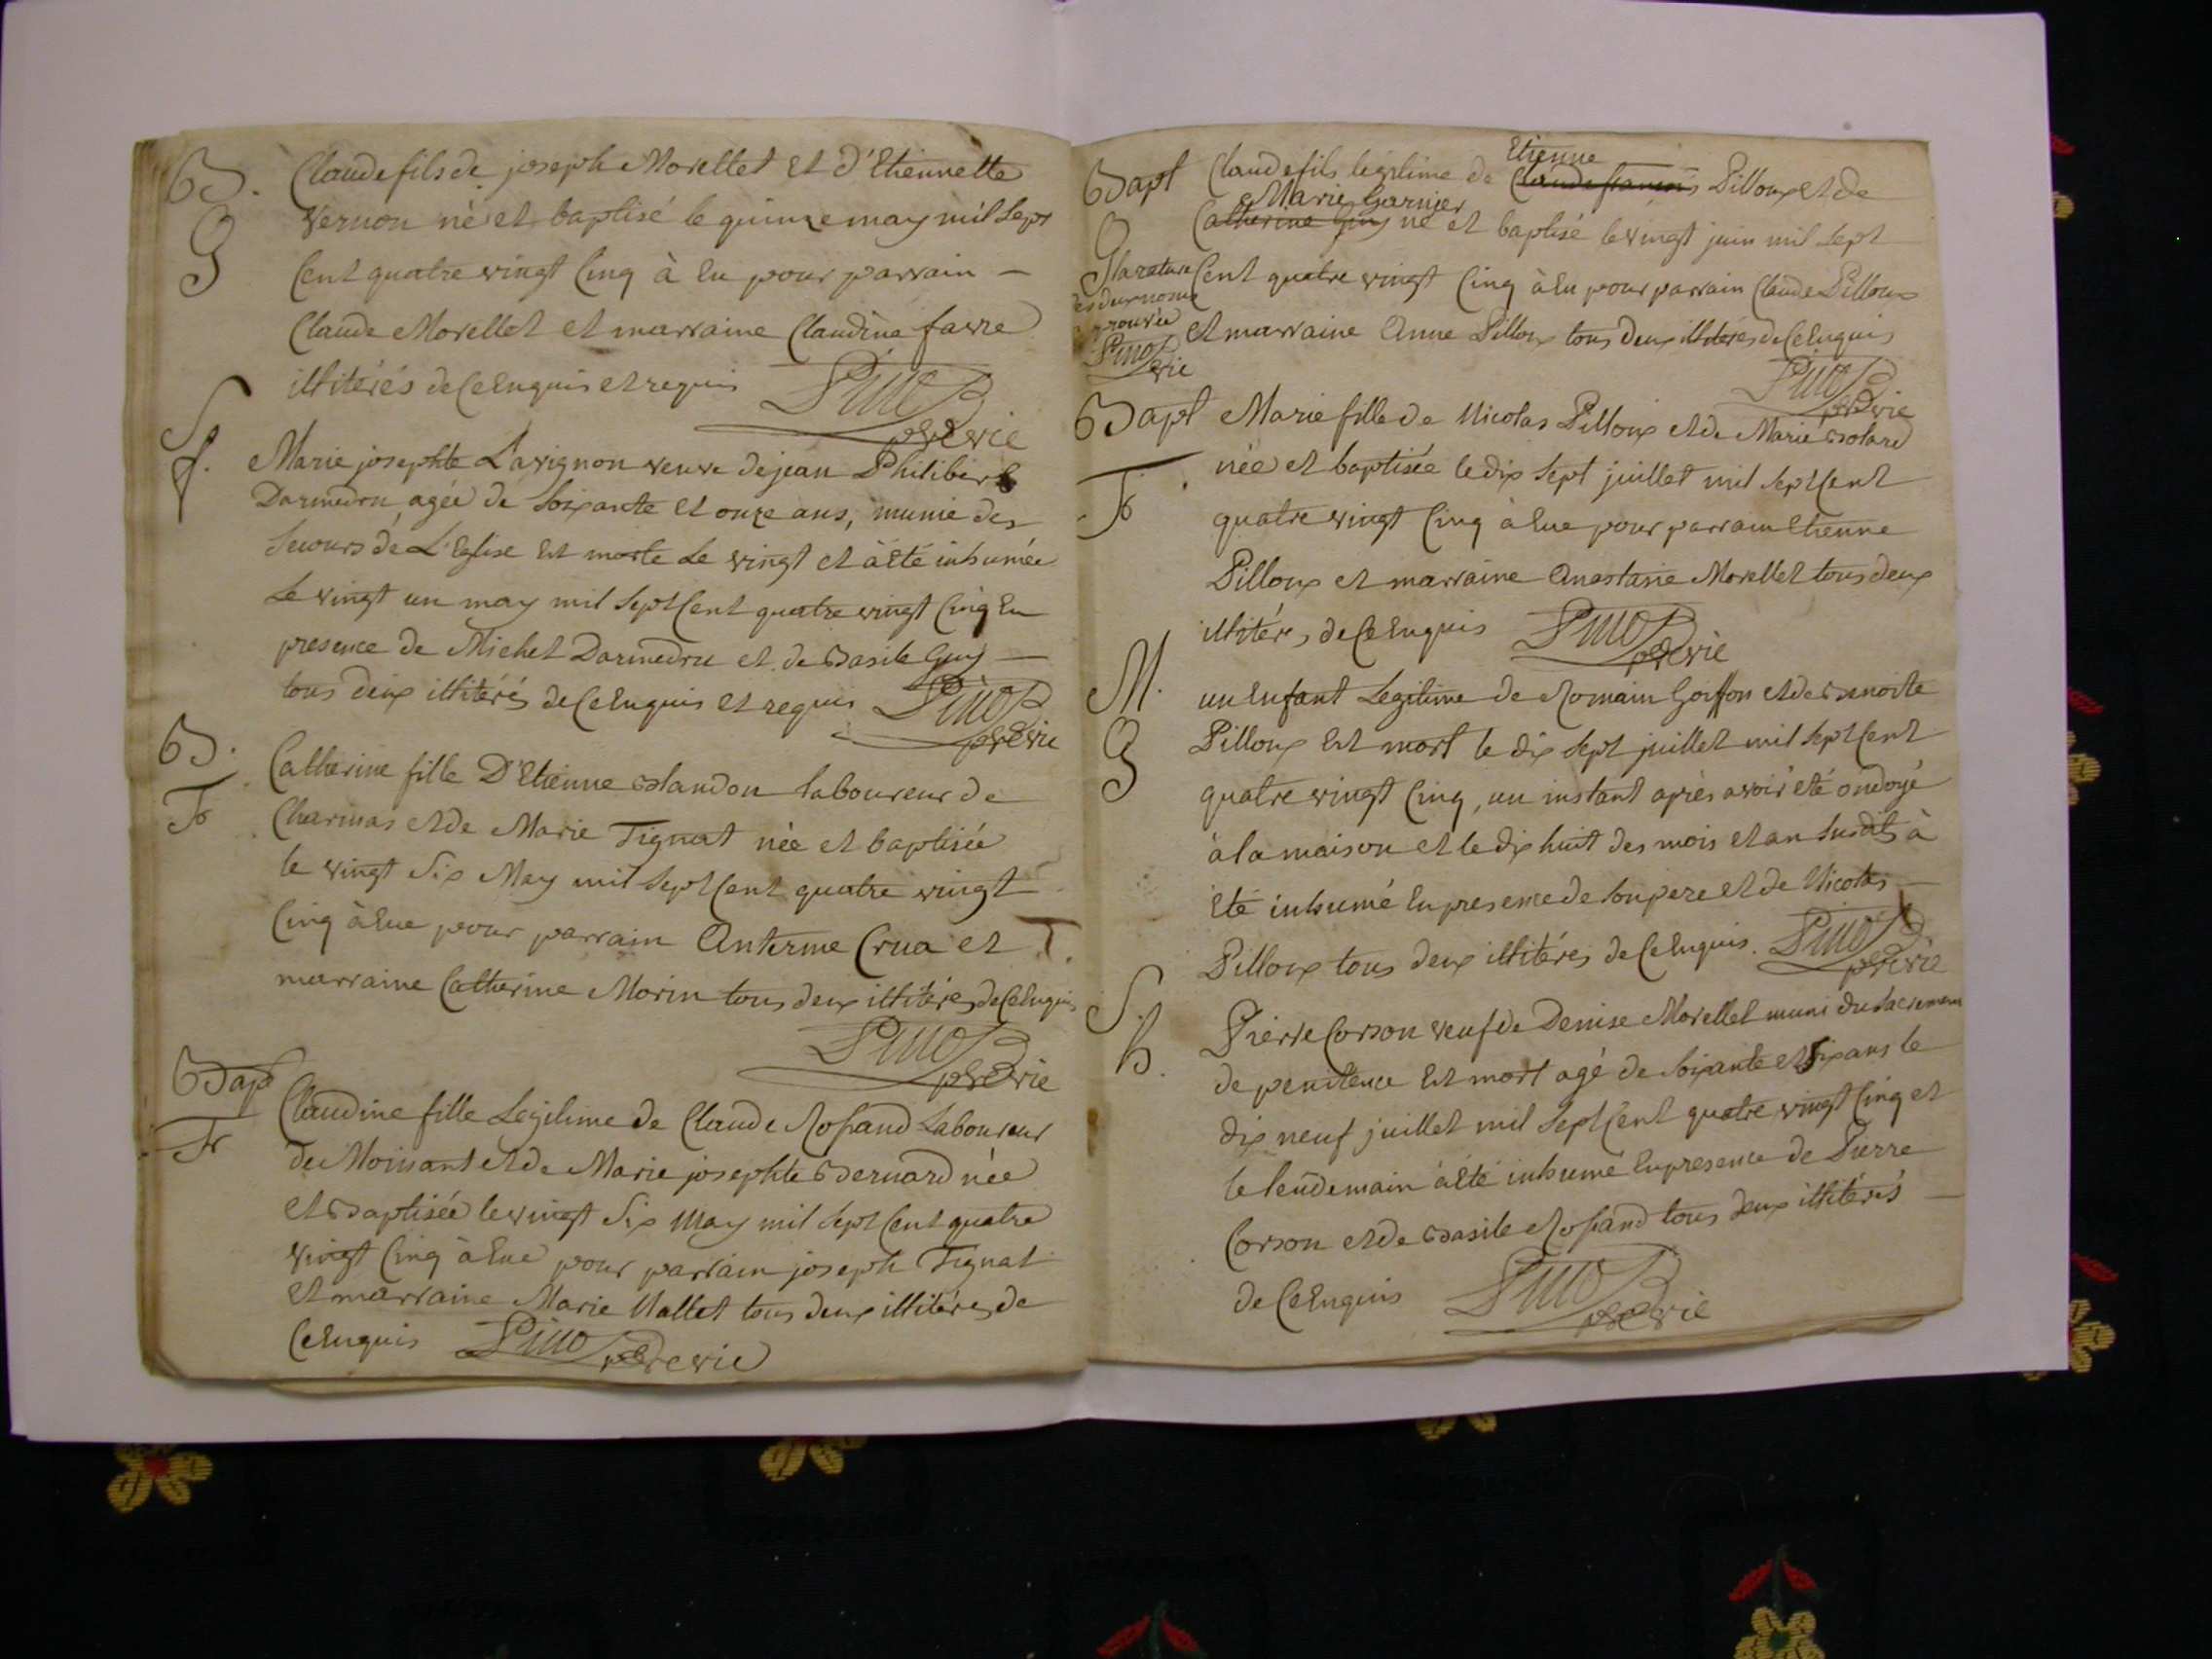 B. Claude fils de joseph Morellet et d'Etiennette
G Vernon né et baptisé le quinze may mil sept
Cent quatre vingt Cinq à Eu pour parrain —
Claude Morellet et marraine Claudine favre
illitérés de Ce Enquis et requis
S
f. Marie josephte Lavignon veuve de jean Philibert
Darmedru, agée de Soixante et onze ans, munie des
Secours de L'Eglise Est morte Le vingt et à Eté inhumée
Le vingt un may mil Sept Cent quatre vingt Cinq En
presence de Michel Darmedru et de Basile Guy —
tous deux illitérés de Ce Enquis et requis
B. Catherine fille D'Etienne Blandon laboureur de
F Charinas et de Marie Tignat née et baptisée
le vingt Six May mil Sept Cent quatre vingt
Cinq à Eue pour parrain Anterme Crua et
marraine Catherine Morin tous deux illitérés de Ce Enquis
Bap
Claudine fille Legitime de Claude Rofand Laboureur
F de Moinant et de Marie josephte Bernard née
et Baptisée le vingt Six May mil Sept Cent quatre
vingt Cinq à Eue pour parrain joseph Tignat
Et marraine Marie Nallet tous deux illitérés de
Ce Enquis
Etienne
Bapt Claude fils légitime de Claude francois Pilloux et de
Marie Garnier
Catherine Guy né et baptisé le vingt juin mil Sept
G
la rature Cent quatre vingt Cinq à Eu pour parrain Claude Pilloux
et marraine Anne Pilloux tous deux illitérés de Ce Enquis
Bapt Marie fille de Nicolas Pilloux et de Marie Bolard
née et baptisée le dix Sept juillet mil Sept Cent
F quatre vingt Cinq à Eue pour parrain Etienne
Pilloux et marraine Anastasie Morellet tous deux
illitérés de Ce Enquis
M. un Enfant Legitime de Romain Goiffon et de Benoite
G Pilloux Est mort le dix Sept juillet mil Sept Cent
quatre vingt Cinq, un instant après avoir été ondoyé
à la maison et le dix huit des mois et an Susdits à
Eté inhumé En presence de Son pere et de Nicolas —
Pilloux tous deux illitérés de Ce Enquis.
S.
h. Pierre Corson veuf de Denise Morellet muni du Sacrement
de penitence Est mort agé de Soixante et Six ans le
dix neuf juillet mil Sept Cent quatre vingt Cinq et
le lendemain à Eté inhumé En presence de Pierre
Corson et de Basile Rofand tous deux illitérés —
de Ce Enquis